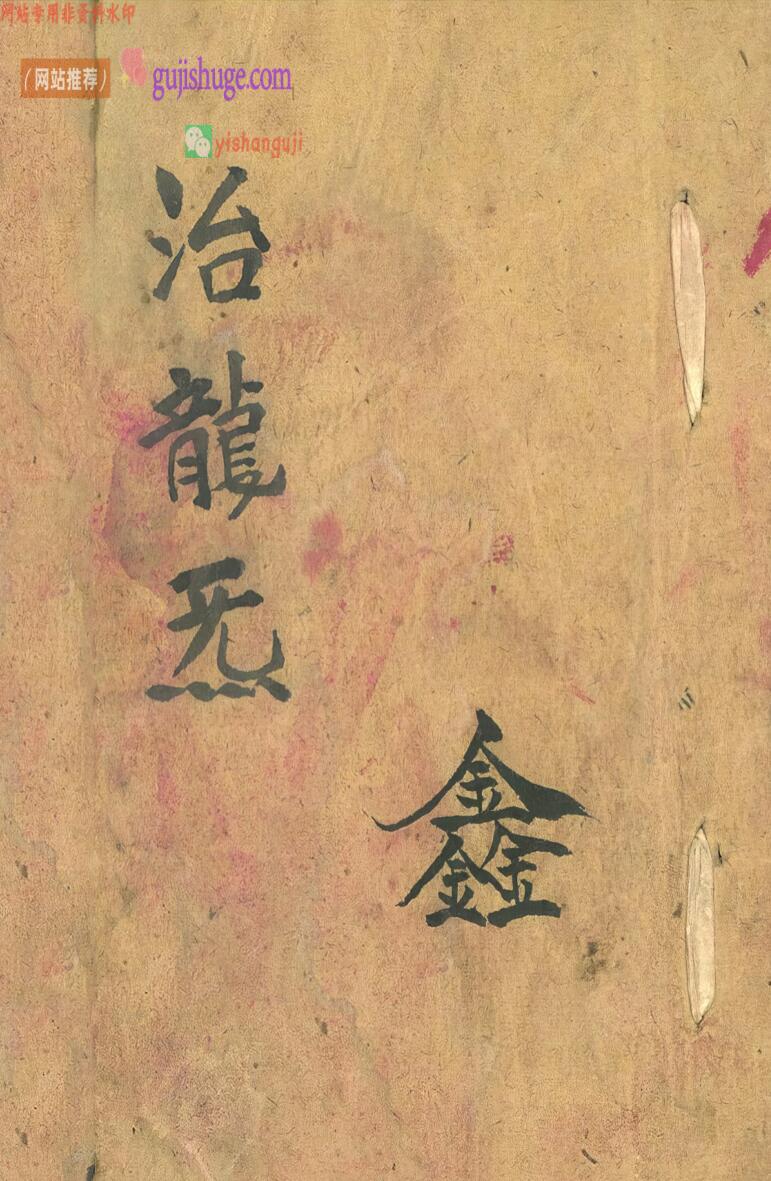 网站专用非资料水印
(网站推荐)
gujishuge.com
yishanguji
治龍炁
鑫